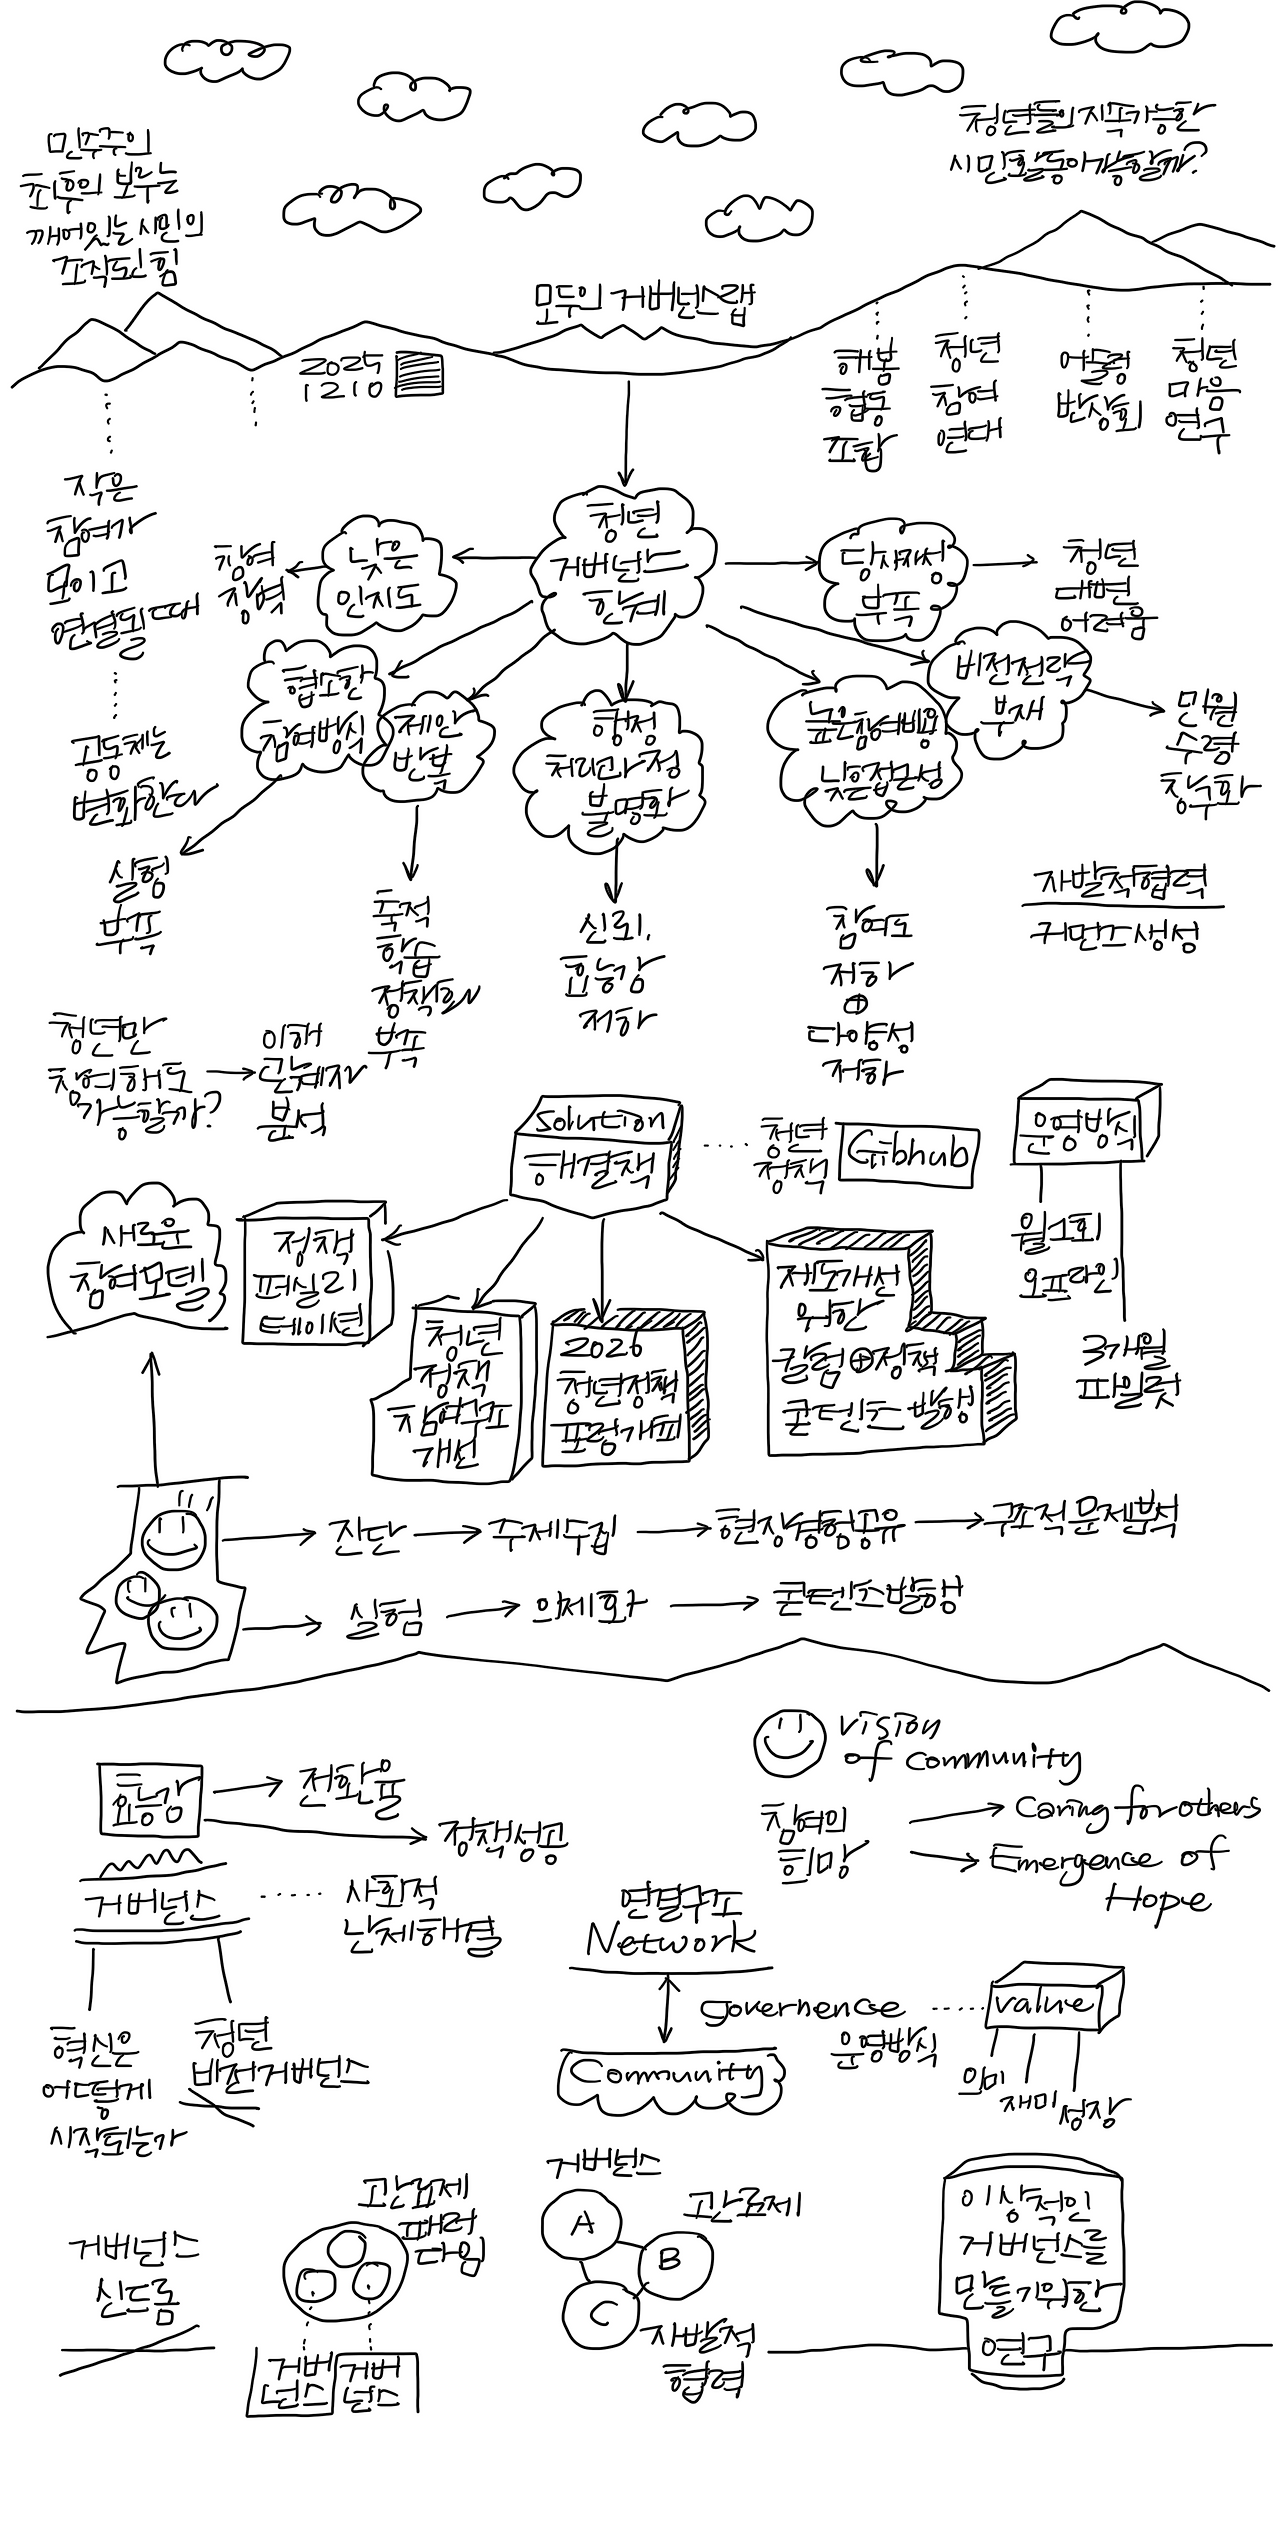 민주주의
최후의 보루는
깨어있는 시민의
조직된 힘
청년들의 지속가능한
시민활동이 가능할까?
모두의 거버넌스랩
2025
1210
해봄
협동
조합
청년
참여
연대
어울렁
반상회
청년
마음
연구
작은
참여가
모이고
연결될 때
공동체는
변화한다
청년
거버넌스
한계
낮은
인지도
참여
장벽
당사자성
부족
청년
대변
어려움
협소한
참여방식
실험
부족
제안
반복
축적
학습
정책화
부족
행정
처리과정
불명확
신뢰,
효능감
저하
높은참여비용
낮은접근성
참여도
저하
⊕
다양성
저하
비전전략
부재
민원
수렴
창구화
자발적협력
커먼즈생성
청년만
참여해도
가능할까?
이해
관계자
분석
solution
해결책
청년
정책
Gibhub
운영방식
월1회
오프라인
3개월
파일럿
새로운
참여모델
정책
퍼실리
테이션
청년
정책
참여구조
개선
2026
청년정책
포럼개최
제도개선
위한
칼럼⊕정책
콘텐츠 발행
진단
주제수집
현장경험공유
구조적 문제분석
실험
의제화
콘텐츠발행
vision
of community
참여의
희망
Caring for others
Emergence of
Hope
효능감
전환율
정책성공
거버넌스
사회적
난제해결
혁신은
어떻게
시작되는가
청년
비전거버넌스
연결구조
Network
governence
운영방식
Community
value
의미
재미
성장
거버넌스
신드롬
관료제
패러
다임
거버
넌스
거버
넌스
거버넌스
A
B
C
관료제
자발적
협력
이상적인
거버넌스를
만들기위한
연구